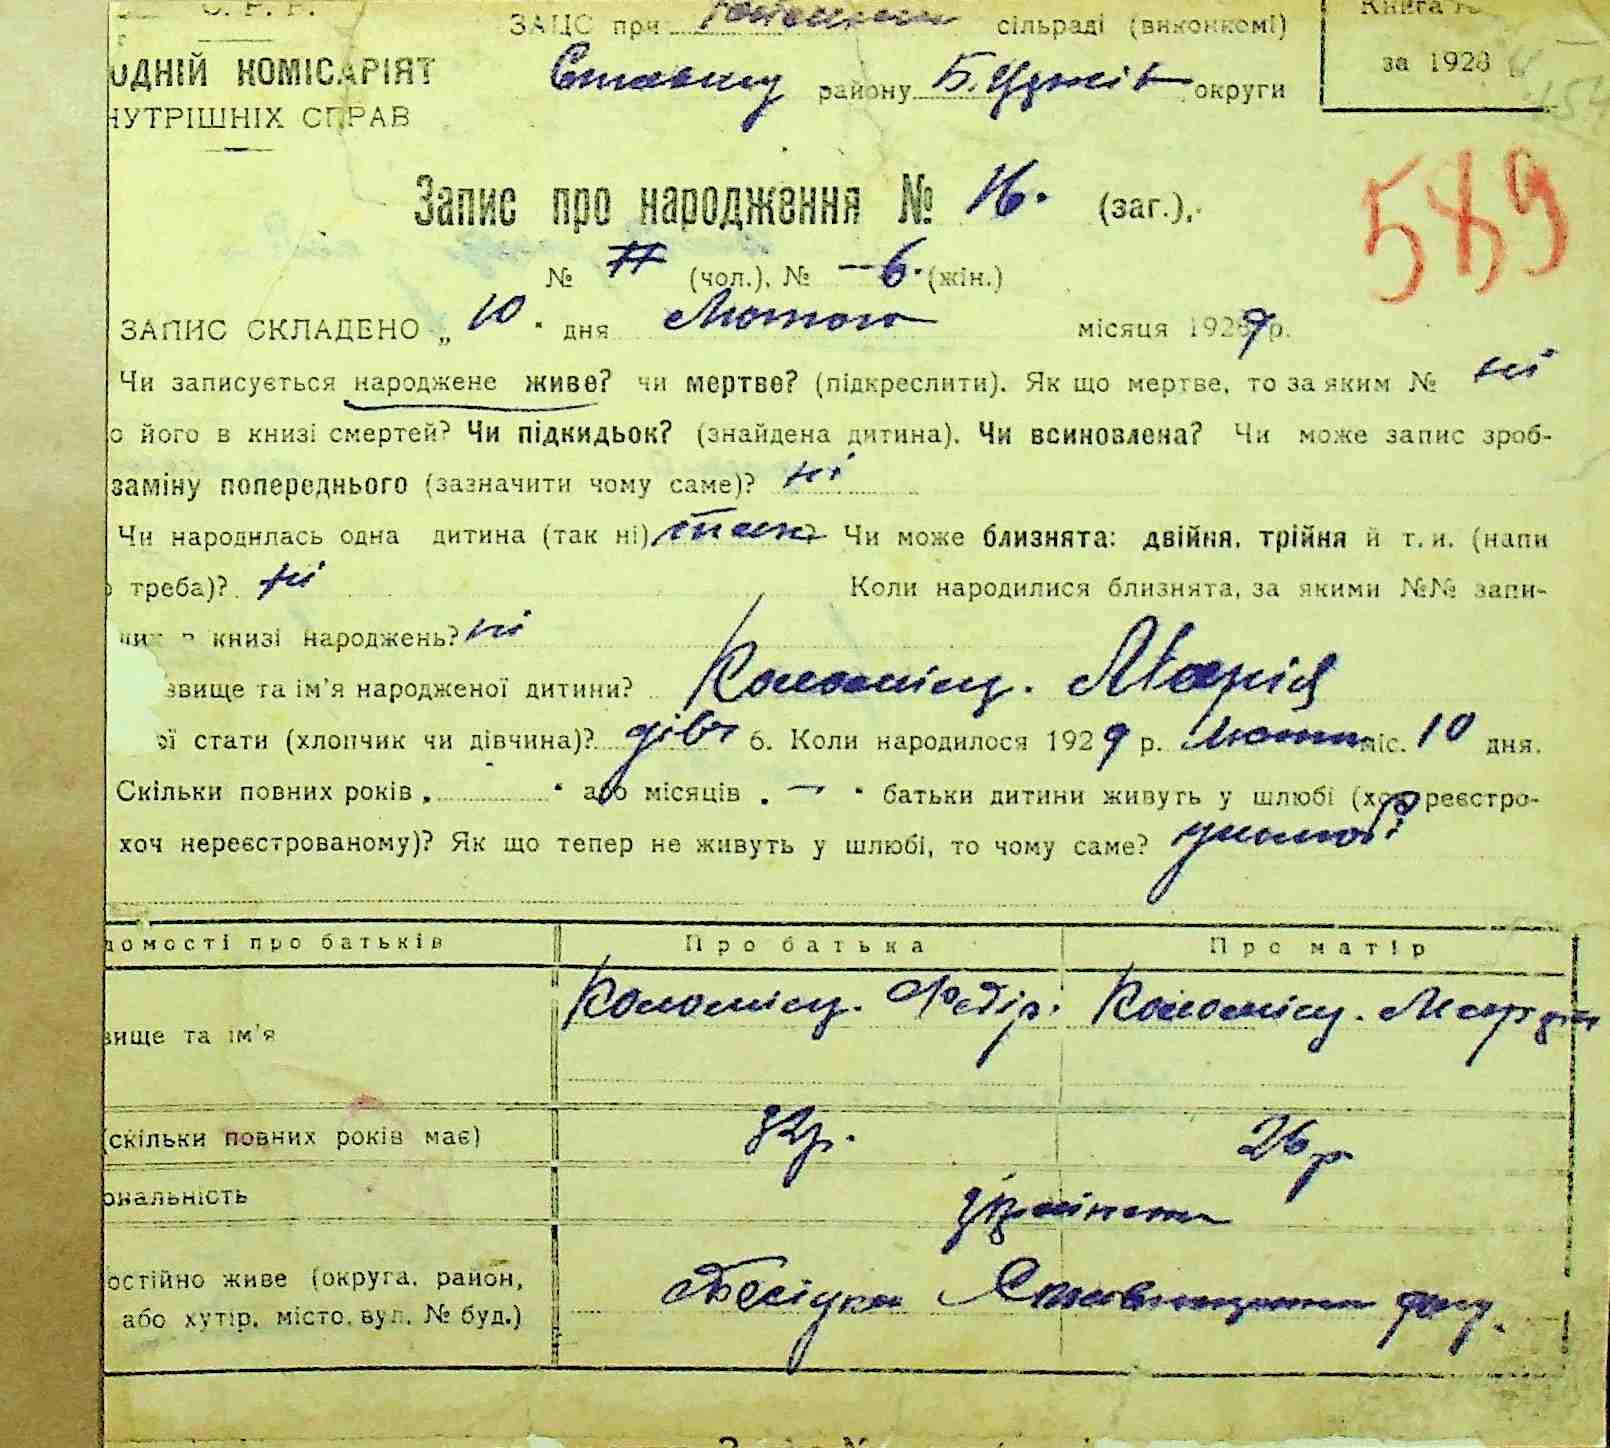 С. Р. Р.
ОДНІЙ КОМІСАРІЯТ
НУТРІШНІХ СПРАВ
ЗАЦС при сільраді (виконкомі)
району Б. Церків округи
Книга
за 1928
589
Запис про народження № 16. (заг.),
№ (чол.), № — 6. (жін.)
ЗАПИС СКЛАДЕНО „ 10 " дня Лютого місяця 1929 р.
Чи записується народжене живе? чи мертве? (підкреслити). Як що мертве, то за яким № ні
о його в книзі смертей? Чи підкидьок? (знайдена дитина). Чи всиновлена? Чи може запис зроб-
заміну попереднього (зазначити чому саме)? ні
Чи народилась одна дитина (так ні) так? Чи може близнята: двійня, трійня й т. и. (напи
о треба)? ні Коли народилися близнята, за якими №№ запи-
них в книзі народжень? ні
звище та ім'я народженої дитини? Коломієц. Марія
ої стати (хлопчик чи дівчина)? дівч 6. Коли народилося 1929 р. Лютого міс. 10 дня.
Скільки повних років „ " або місяців „ — " батьки дитини живуть у шлюбі (хоч реєстро-
хоч нереєстрованому)? Як що тепер не живуть у шлюбі, то чому саме? ушлюбі
домості про батьків Про батька Про матір
вище та ім'я Коломієц. Федір. Коломієц.
(скільки повних років має) 32р. 26 р.
ональність Українці
остійно живе (округа, район,
або хутір, місто, вул. № буд.) Бесідка